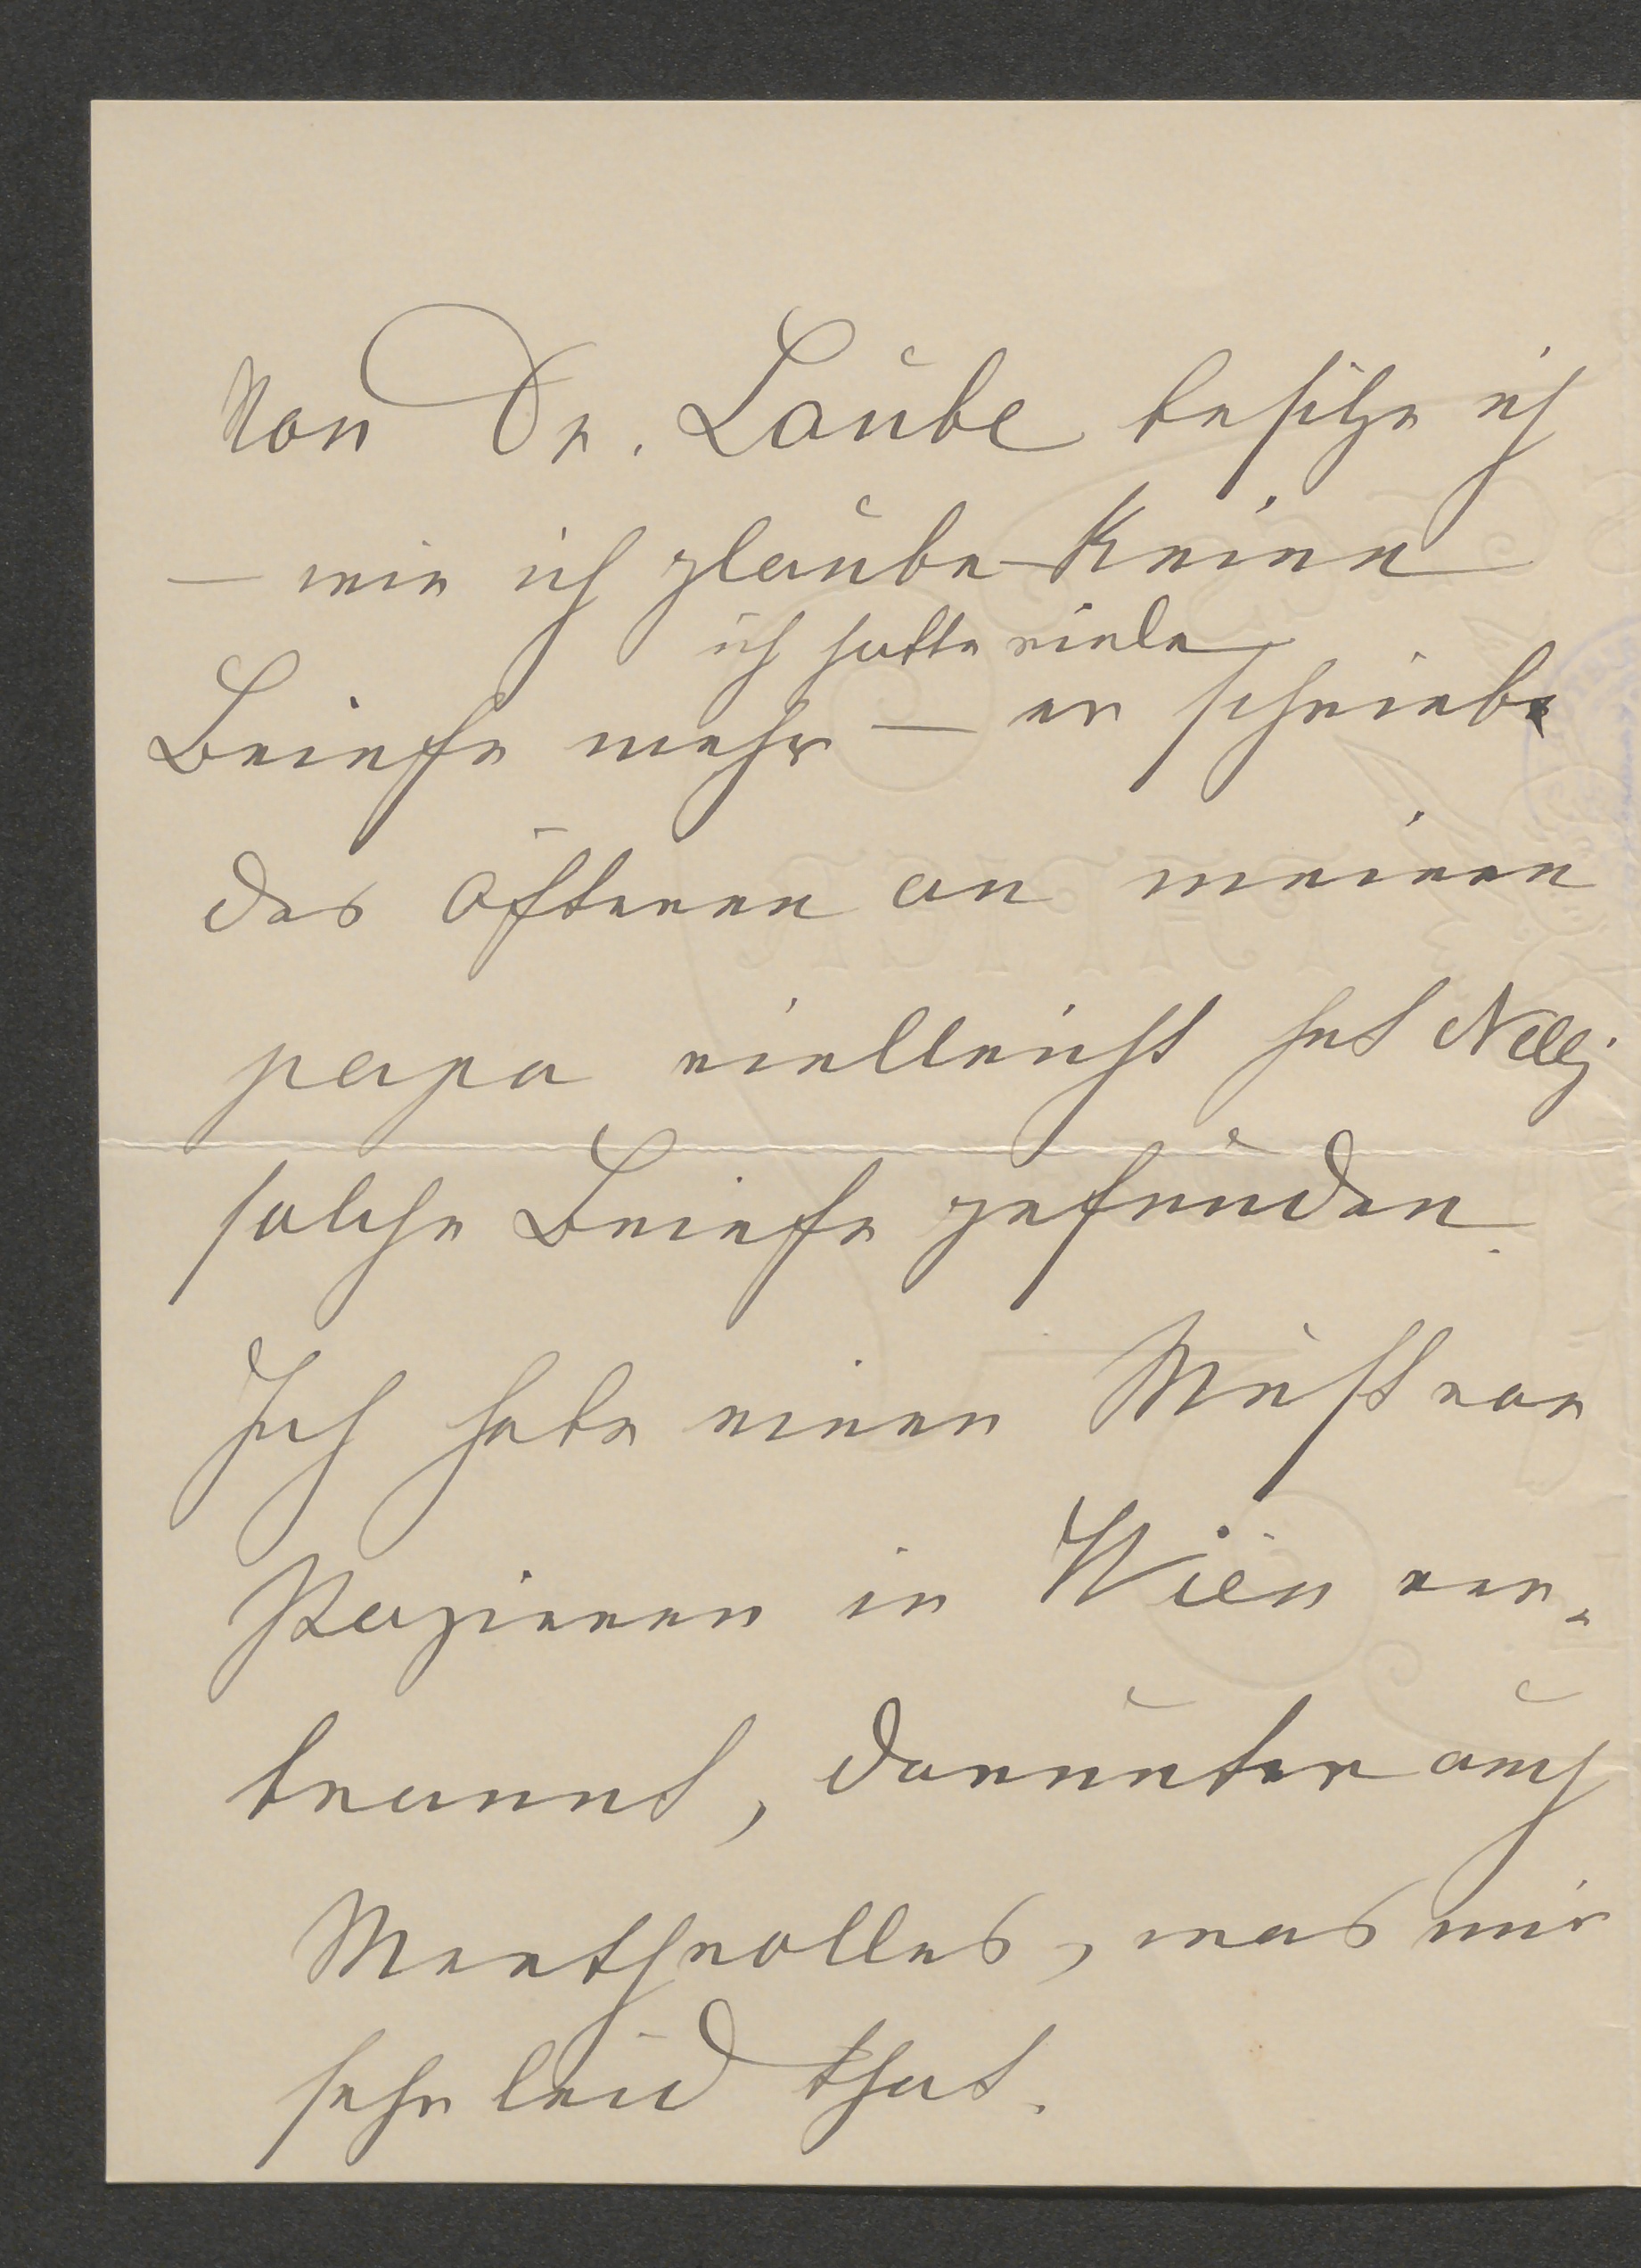 Von Dr. Laube besitze ich
— wie ich glaube – keine
ich hatte viele
Briefe mehr — er schrieb
des Öfteren an meinen
papa vielleicht hat Nelly
solche Briefe gefunden.
Ich habe einen Wust von
Papieren in Wien ver-
brannt, darunter auch
Werthvolles, was mir
sehr leid that.